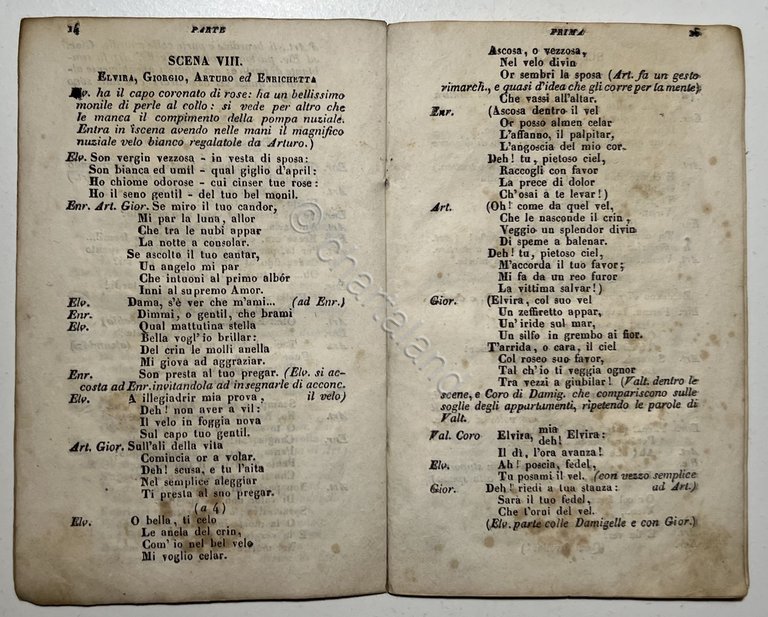 14 PARTE
SCENA VIII.
ELVIRA, GIORGIO, ARTURO ed ENRICHETTA
Elv. ha il capo coronato di rose: ha un bellissimo
monile di perle al collo: si vede per altro che
le manca il compimento della pompa nuziale.
Entra in iscena avendo nelle mani il magnifico
nuziale velo bianco regalatole da Arturo.)
Elv. Son vergin vezzosa - in vesta di sposa:
Son bianca ed umil - qual giglio d'april:
Ho chiome odorose - cui cinser tue rose:
Ho il seno gentil - del tuo bel monil.
Enr. Art. Gior. Se miro il tuo candor,
Mi par la luna, allor
Che tra le nubi appar
La notte a consolar.
Se ascolto il tuo cantar,
Un angelo mi par
Che intuoni al primo albór
Inni al supremo Amor.
Elv. Dama, s'è ver che m'ami... (ad Enr.)
Enr. Dimmi, o gentil, che brami
Elv. Qual mattutina stella
Bella vogl'io brillar:
Del crin le molli anella
Mi giova ad aggraziar.
Enr. Son presta al tuo pregar. (Elv. si ac-
costa ad Enr. invitandola ad insegnarle di acconc.
Elv. A illegiadrir mia prova, il velo)
Deh! non aver a vil:
Il velo in foggia nova
Sul capo tuo gentil.
Art. Gior. Sull'ali della vita
Comincia or a volar.
Deh! scusa, e tu l'aita
Nel semplice aleggiar
Ti presta al suo pregar.
(a 4)
Elv. O bella, ti celo
Le anela del crin,
Com' io nel bel velo
Mi voglio celar.
PRIMA
Ascosa, o vezzosa,
Nel velo divin
Or sembri la sposa (Art. fa un gesto
rimarch., e quasi d'idea che gli corre per la mente)
Che vassi all'altar.
Enr. (Ascosa dentro il vel
Or possò almen celar
L'affanno, il palpitar,
L'angoscia del mio cor.
Deh! tu, pietoso ciel,
Raccogli con favor
La prece di dolor
Ch'osai a te levar!)
Art. (Oh! come da quel vel,
Che le nasconde il crin,
Veggio un splendor divin
Di speme a balenar.
Deh! tu, pietoso ciel,
M'accorda il tuo favor;
Mi fa da un reo furor
La vittima salvar!)
Gior. (Elvira, col suo vel
Un zeffiretto appar,
Un' iride sul mar,
Un silfo in grembo ai fior.
T'arrida, o cara, il ciel
Col roseo suo favor,
Tal ch'io ti veggia ognor
Tra vezzi a giubilar! (Valt. dentro le
scene, e Coro di Damig. che compariscono sulle
soglie degli appartamenti, ripetendo le parole di
Valt.
Val. Coro Elvira, mia deh! Elvira:
Il dì, l'ora avanza!
Elv. Ah! poscia, fedel,
Tu posami il vel. (con vezzo semplice
Gior. Deh! riedi a tua stanza: ad Art.)
Sarà il tuo fedel,
Che t'orni del vel.
(Elv. parte colle Damigelle e con Gior.)
© chartaland